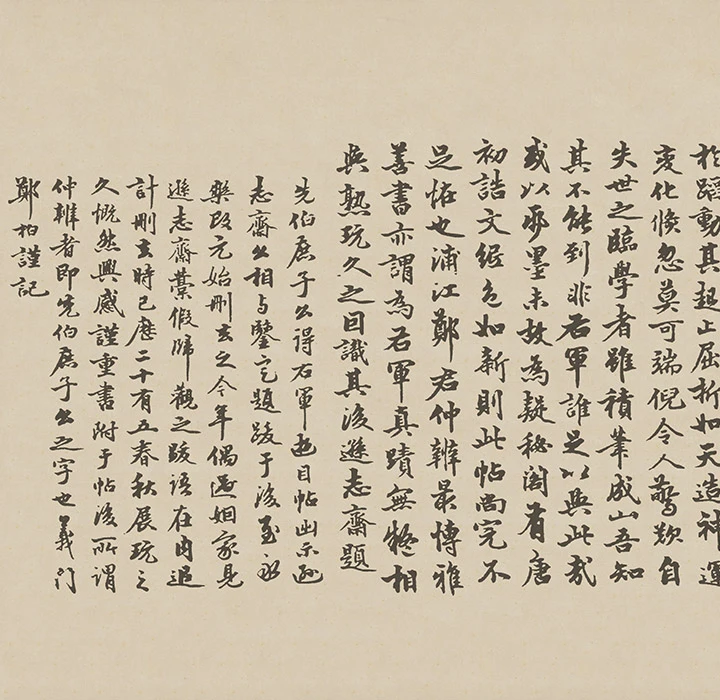 蹈動其起止屈折如天造神運
変化倏忽莫可端倪令人驚歎自
失世之臨學者雖積筆成山吾知
其不能到非右軍誰足以與此哉
或以帋墨未故為疑秘閣有唐
初誥文絹色如新則此帖尚完不
足怪也浦江鄭君仲辨最博雅
善書亦謂為右軍真蹟無疑相
與熟玩久之因識其後遜志齋題
先伯庶子公得右軍遊目帖出示遜
志齋公相与鑒定題跋于後至永
樂改元始刪去之今年偶過姻家見
遜志齋藁假歸觀之跋語在內追
計刪去時已歷二十有五春秋展玩之
久慨然興感謹重書附于帖後所謂
仲辨者即先伯庶子公之字也義門
鄭柏謹記